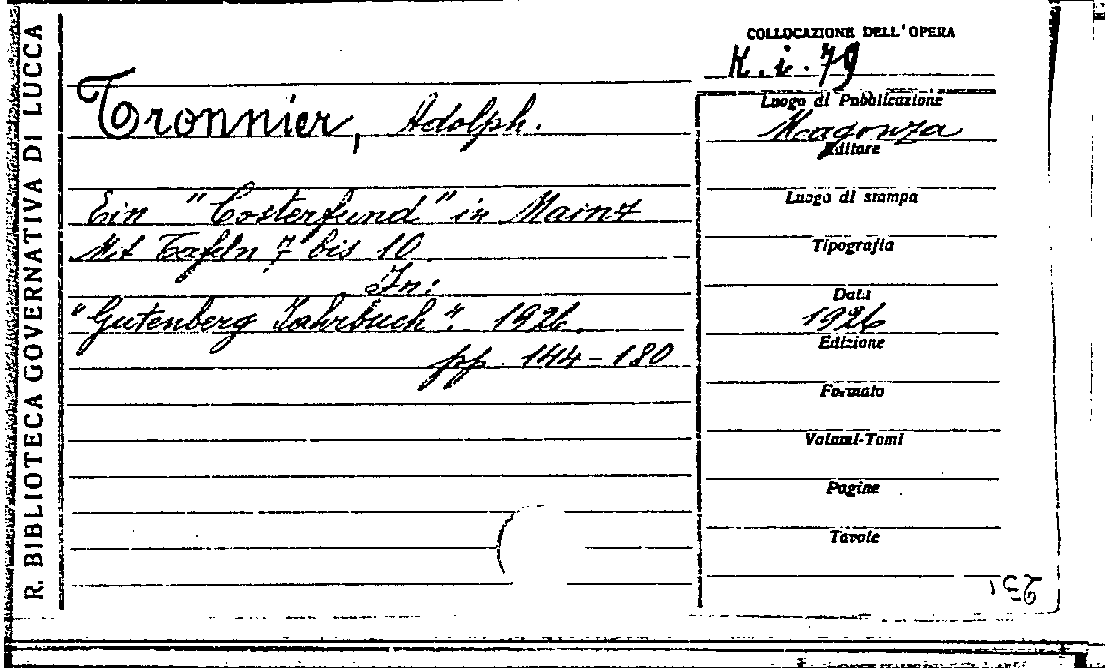 R. BIBLIOTECA GOVERNATIVA DI LUCCA
COLLOCAZIONE DELL'OPERA
K. i. 79
Tronnier, Adolph.
Ein "Costerfund" in Mainz
Mit Tafeln 7 bis 10.
In:
"Gutenberg Jahrbuch". 1926.
pp. 144-180
Luogo di Pubblicazione
Magonza
Editore
Luogo di stampa
Tipografia
Data
1926
Edizione
Formato
Volumi-Tomi
Pagine
Tavole